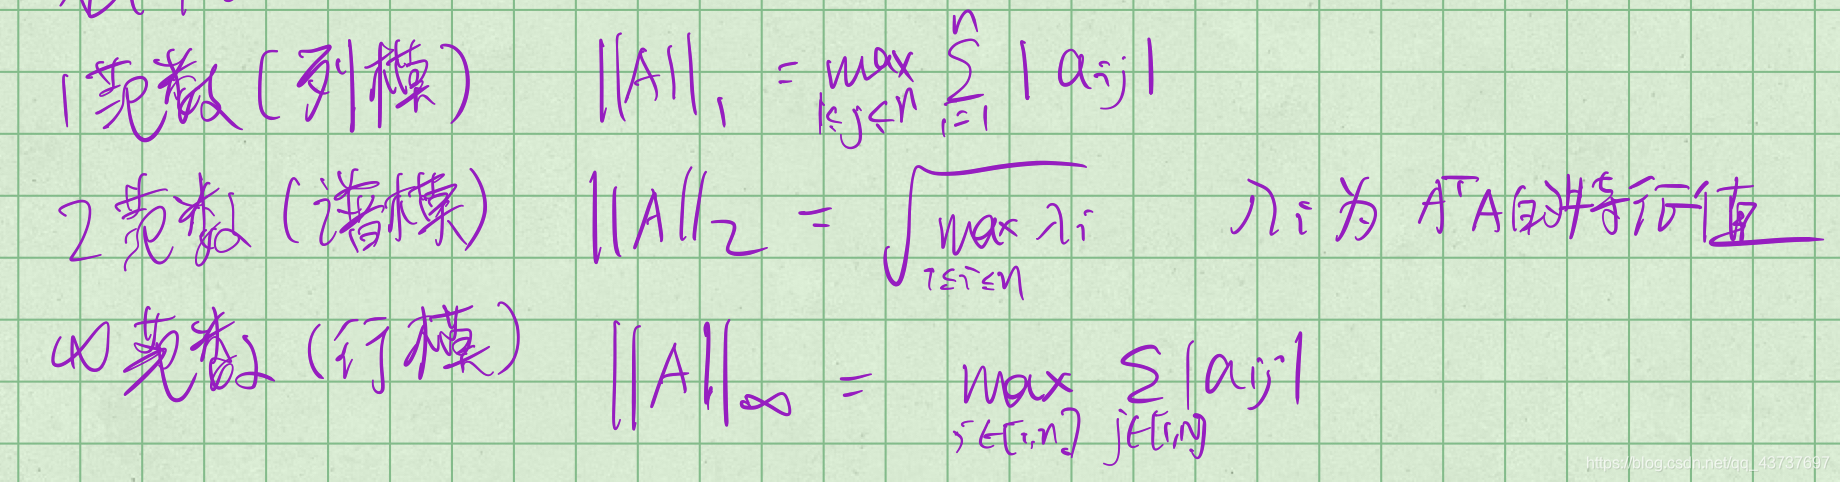 1范数(列模) ||A||₁ = max 1≤j≤n ∑ i=1 n |aij|
2范数(谱模) ||A||₂ = √(max 1≤i≤n λi) λi为AᵀA的特征值
∞范数(行模) ||A||∞ = max i∈[1,n] ∑ j∈[1,n] |aij|
https://blog.csdn.net/qq_43737697